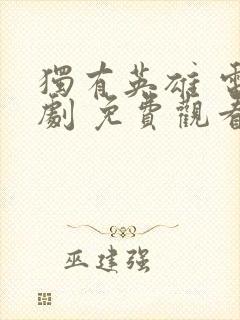 獨有英雄 電
劇 免費觀看
巫建强